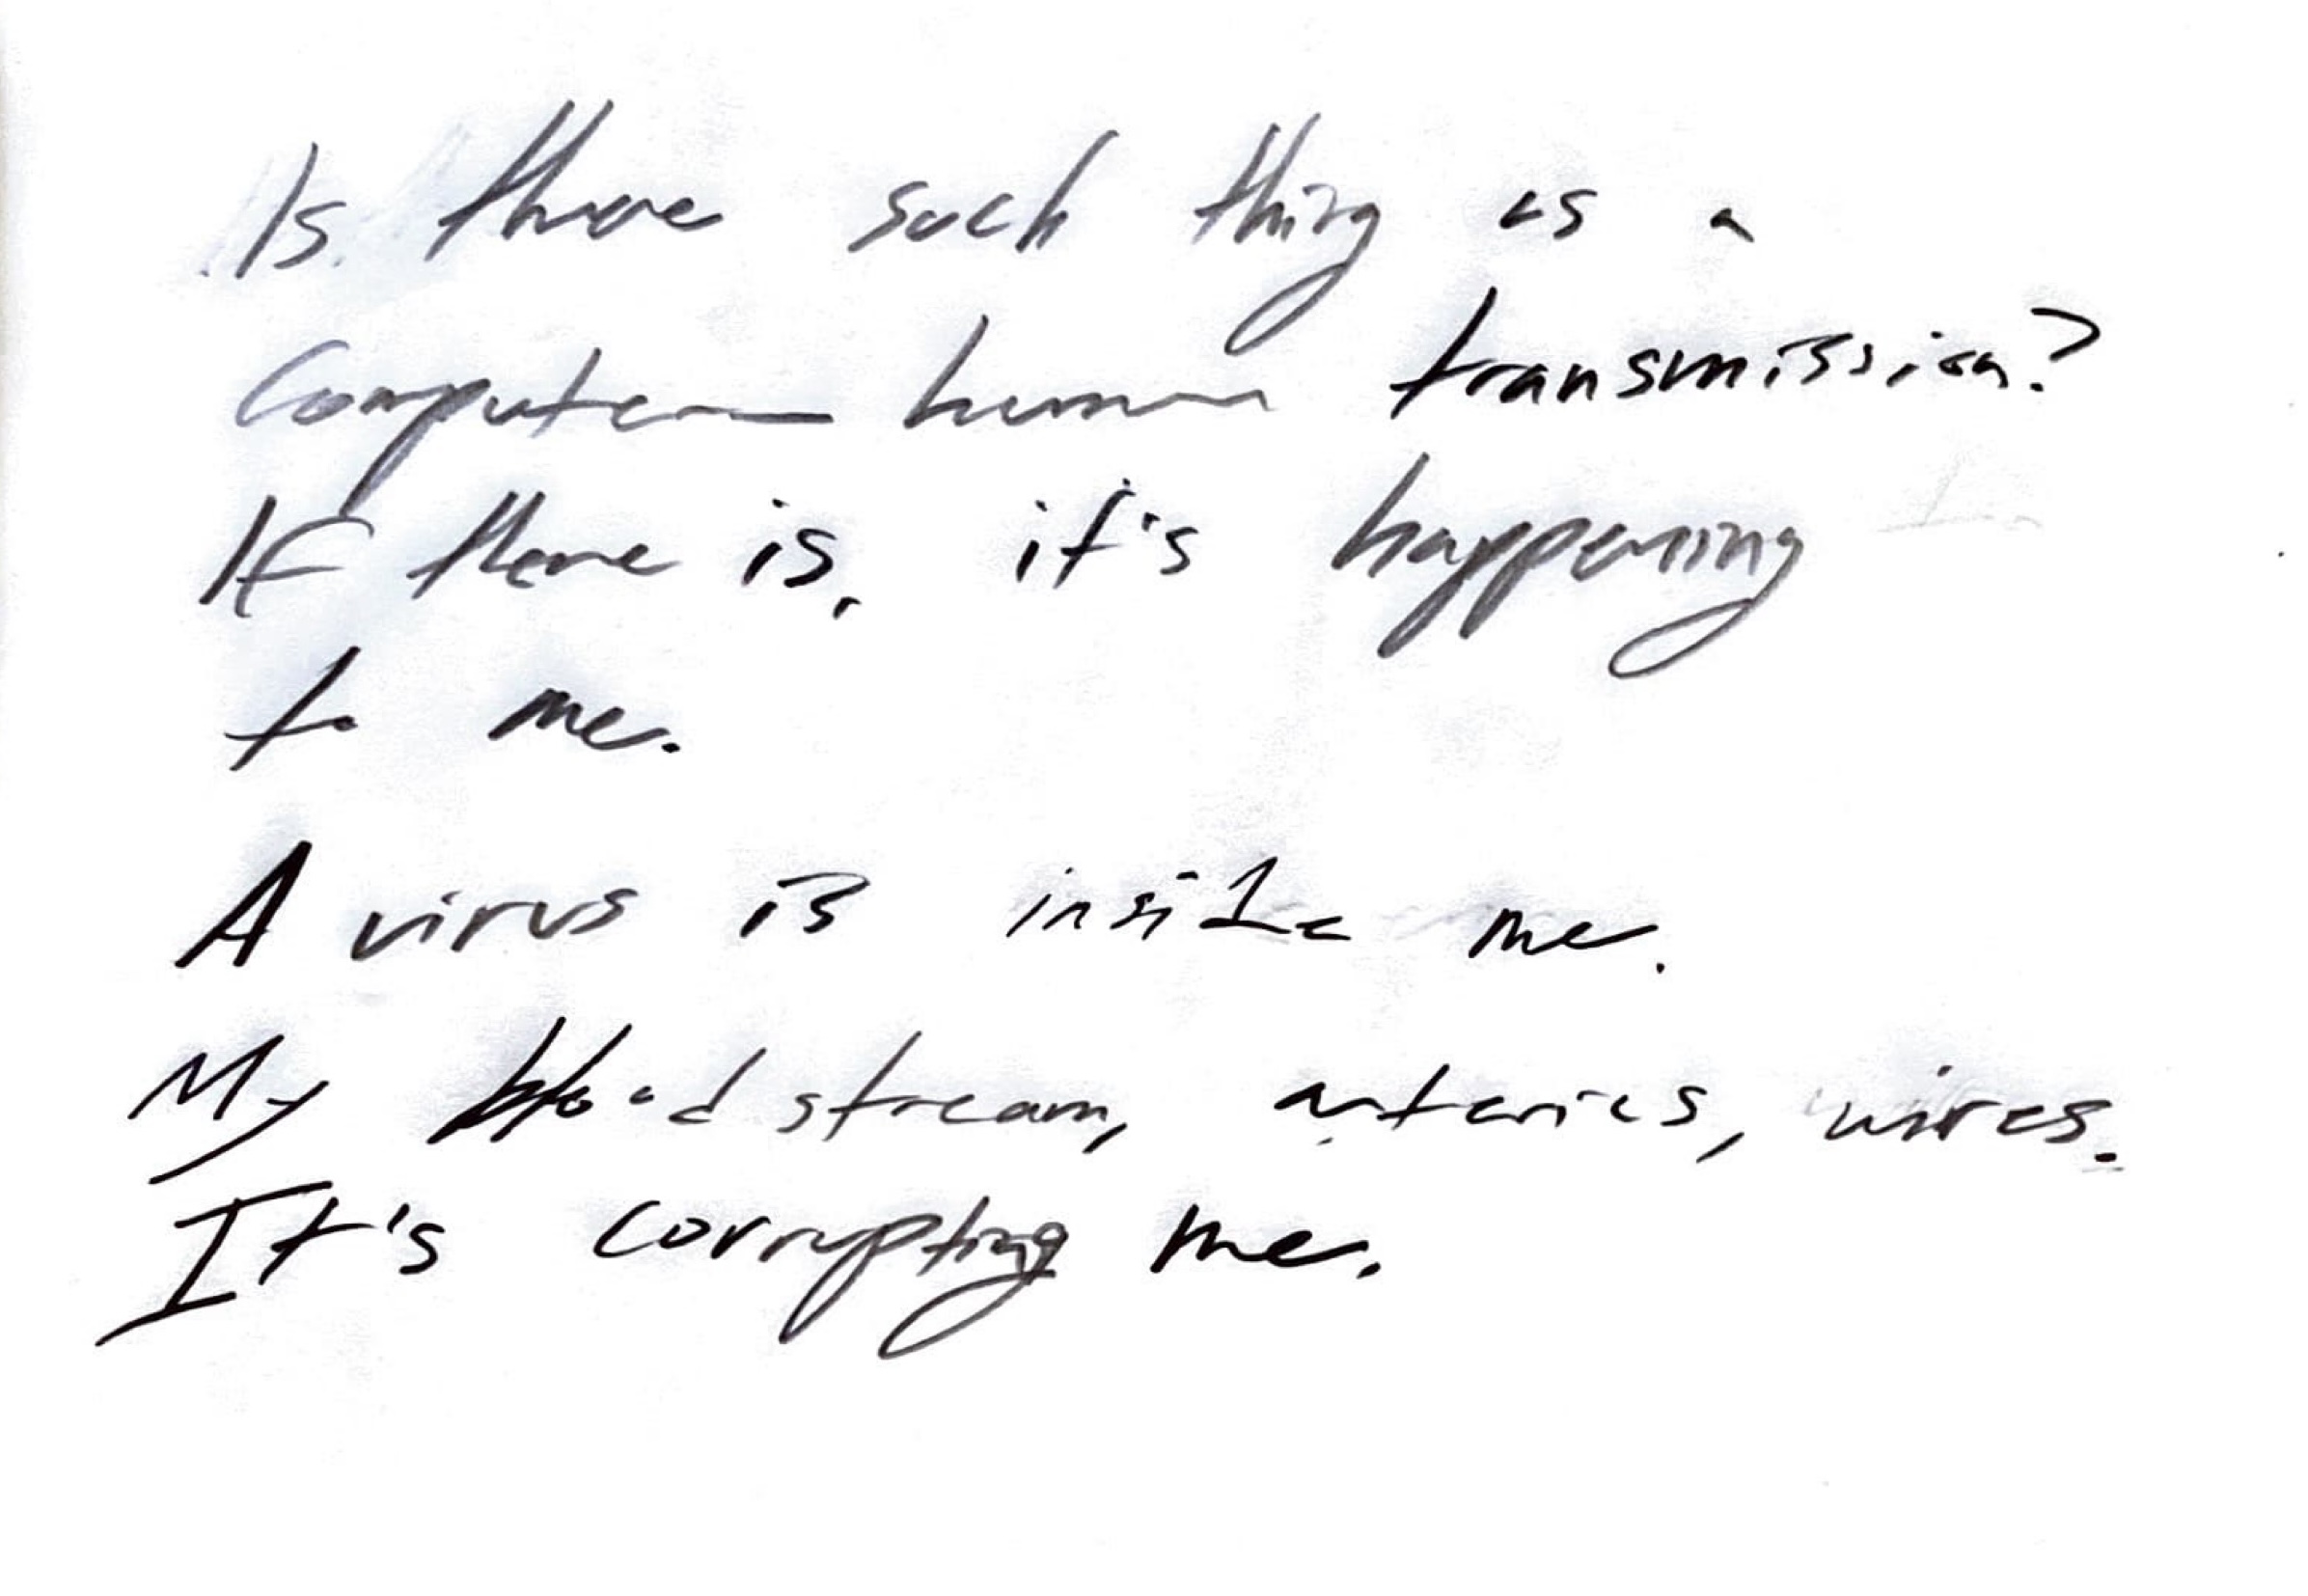 Is there such thing as a
Computer human transmission?
If there is, it's happening
to me.
A virus is inside me.
My bloodstream, arteries, wires.
It's corrupting me.